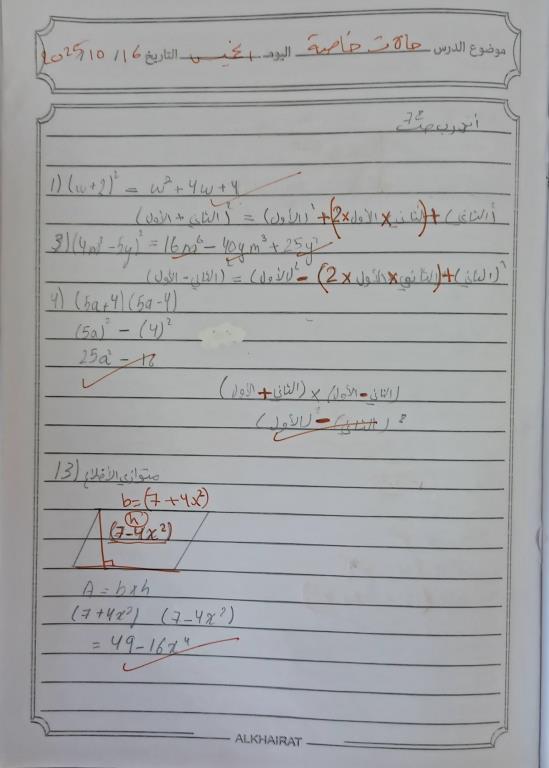 موضوع الدرس حالات خاصة اليوم الخميس التاريخ 16 / 10 / 2025
أتدرب ص 78
1) (w+2)² = w² + 4w + 4
(الأول + الثاني)² = (الأول)² + (2 × الأول × الثاني) + (الثاني)²
3) (4m³ - 5y)² = 16m⁶ - 40ym³ + 25y²
(الأول - الثاني)² = (الأول)² - (2 × الأول × الثاني) + (الثاني)²
4) (5a+4)(5a-4)
(5a)² - (4)²
25a² - 16
(الأول + الثاني) × (الأول - الثاني)
(الأول)² - (الثاني)²
13) متوازي الأضلاع
b = (7 + 4x²)
h
(7-4x²)
A = b×h
(7+4x²) (7-4x²)
= 49 - 16x⁴
ALKHAIRAT